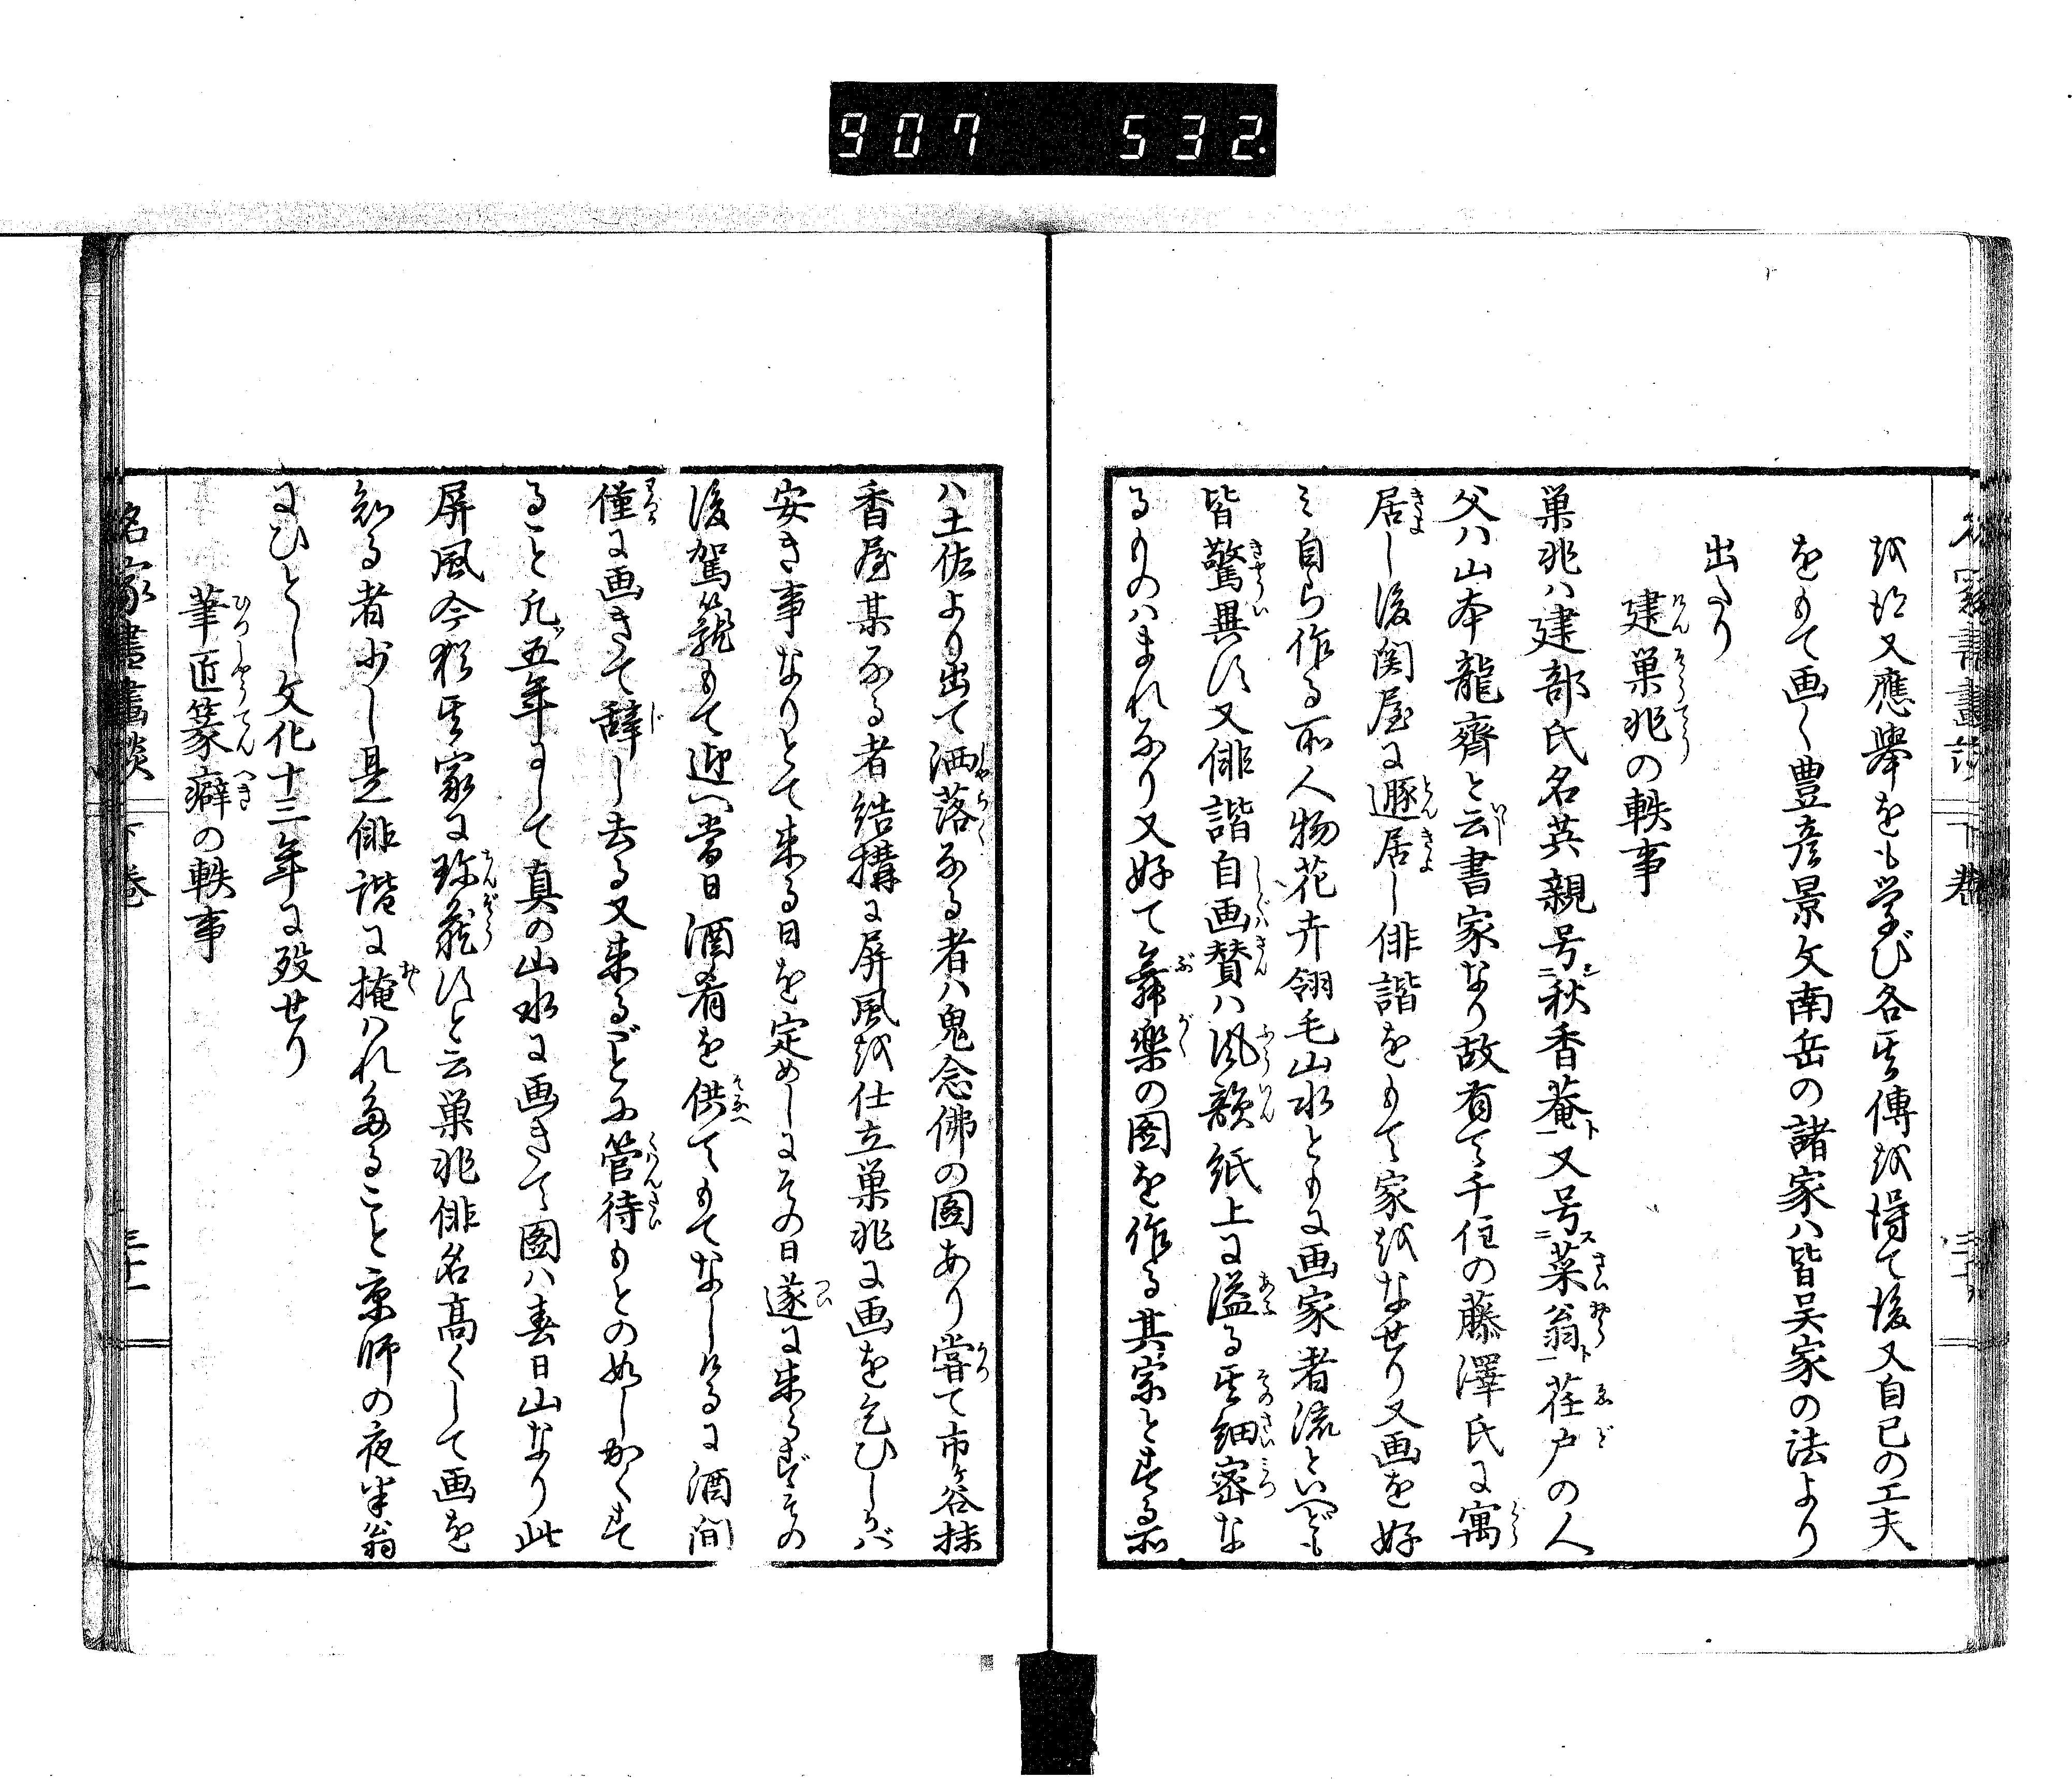 907 532.
を以又應擧をも学び各其傳を得て後又自己の工夫
をもて画く豊彦景文南岳の諸家ハ皆呉家の法より
出たり
建巣兆の軼事
巣兆ハ建部氏名英親号ニ秋香菴ト一又号ニス菜翁ト一荏戸の人
父ハ山本龍齊と云書家なり故有て千住の藤澤氏に寓
居し後関屋に遯居し俳諧をもて家をなせり又画を好
ミ自ら作る所人物花卉翎毛山水ともに画家者流といへども
皆驚異す又俳諧自画賛ハ風韻紙上に溢る其細密な
るものハまれなり又好て舞樂の図を作る其宗とする所
ハ土佐より出て洒落なる者ハ鬼念佛の図あり嘗て市ヶ谷抹
香屋某なる者結構に屏風を仕立巣兆に画を乞ひしかバ
安き事なりとて来る日を定めしにその日遂に来らずその
後駕籠もて迎へ當日酒肴を供てもてなしけるに酒間
僅に画きて辞し去る又来るごとに管待もとの如しかくす
ること凡五年にして真の山水に画きて図ハ春日山なり此
屏風今猶其家に珍蔵すと云巣兆俳名高くして画を
知る者少し是俳諧に掩ハれたること京師の夜半翁
にひとし文化十三年に歿せり
筆匠篆癖の軼事
名家書畫談 下巻